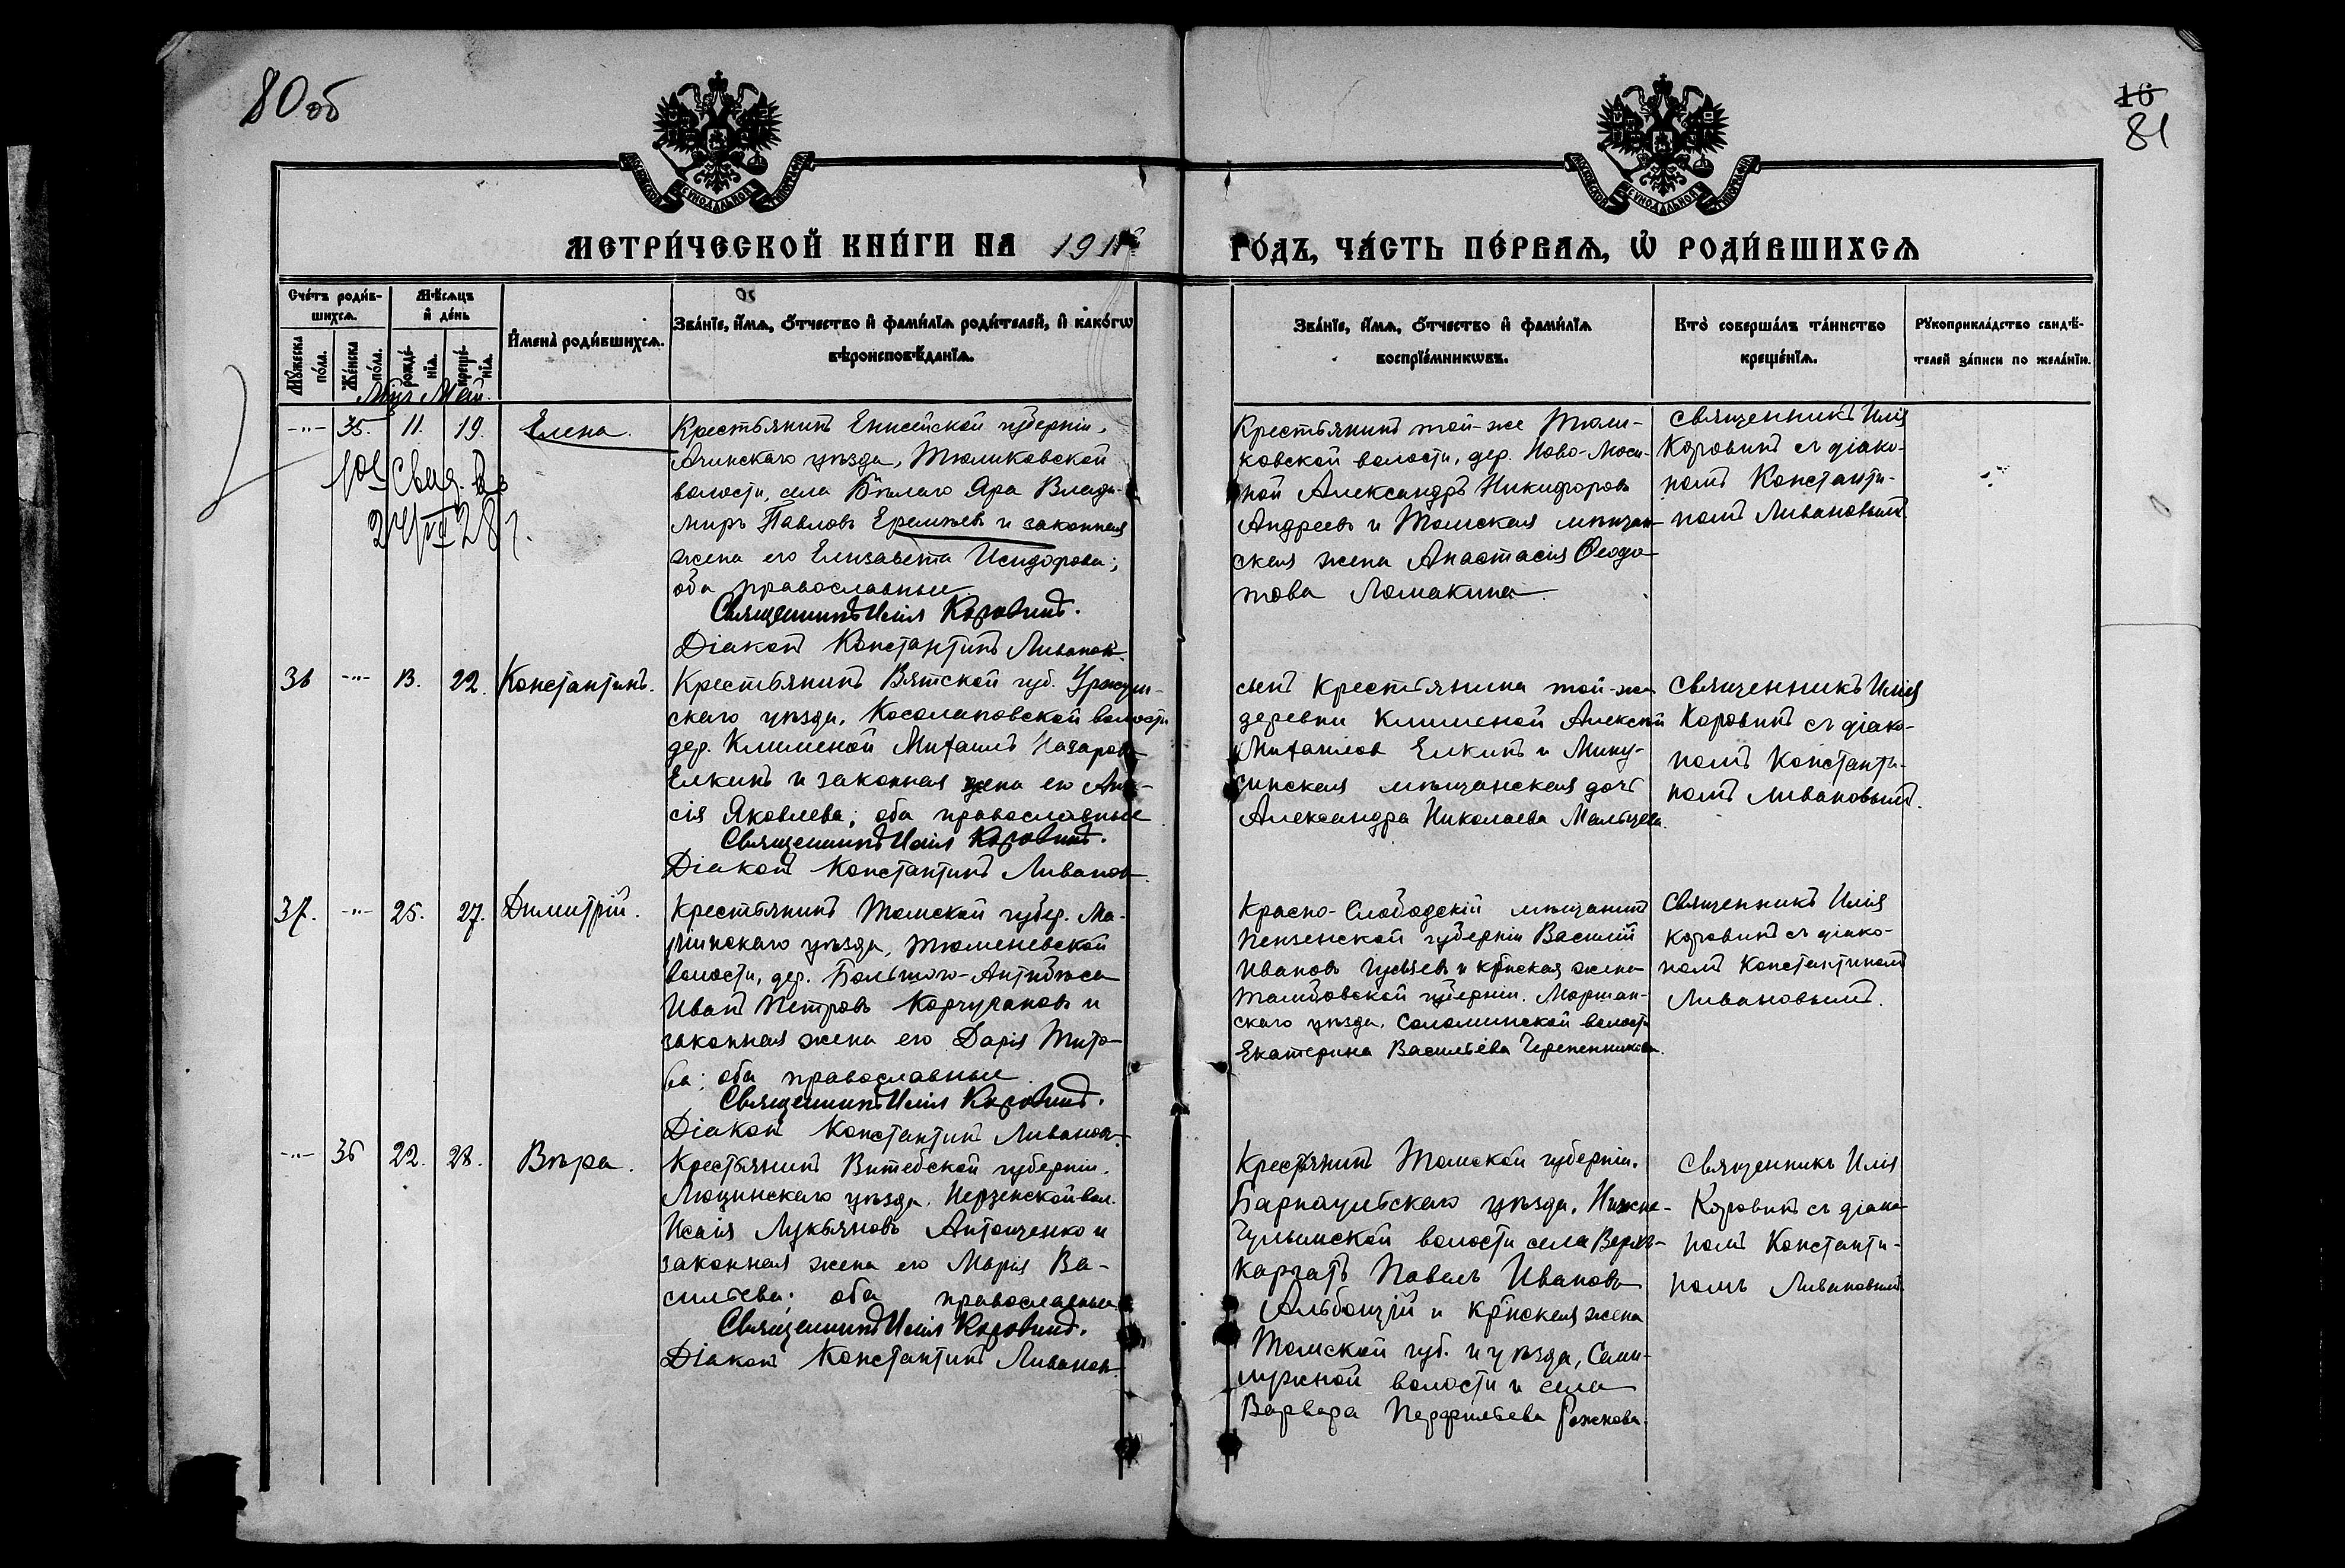 80 об
16
81
МЕТРИ́ЧЕСКОЙ КНИ́ГИ НА 191
ГО́ДЪ, ЧА́СТЬ ПЕ́РВАѦ, Ѡ҆ РОДИ́ВШИХСѦ
Сче́тъ роди́в-
шихсѧ.
Мꙋ́жеска по́ла.
Же́нска по́ла.
Мѣ́сѧцъ
и҆ де́нь
рожде́-
нїѧ.
креще́-
нїѧ.
И҆мена̀ роди́вшихсѧ.
Зва́нїе, и҆́мѧ, ѻ҆́тчество и҆ фами́лїѧ роди́телей, и҆ како́гѡ
вѣроисповѣ́данїѧ.
Зва́нїе, и҆́мѧ, ѻ҆́тчество и҆ фами́лїѧ
воспрїе́мникѡвъ.
Кто̀ соверша́лъ та́инство
креще́нїѧ.
Рꙋкоприкла́дство свидѣ́-
телей за́писи по жела́нїю.
Май.
-"- 35. 11. 19. Елена.
Крестьянинъ Енисейской губерніи,
Ачинскаго уѣзда, Тюликовской
волости, села Бѣлаго Яра Влади-
миръ Павловъ Еремѣевъ и законная
жена его Елизавета Исидорова;
оба православные
Священникъ Илія Коровинъ.
Діаконъ Константинъ Ливановъ.
Крестьянинъ той-же Тюли-
ковской волости, дер. Ново-Моси-
ной Александръ Никифоровъ
Андреевъ и Томская мѣщан-
ская жена Анастасія Ѳеодо-
това Ломакина
Священникъ Илія
Коровинъ съ діако-
номъ Константи-
номъ Ливановымъ.
36 -"- 13. 22. Константинъ.
Крестьянинъ Вятской губ. Уржум-
скаго уѣзда, Косолаповской волости
дер. Климиной Михаилъ Назаровъ
Елкинъ и законная жена его Ани-
сія Яковлева; оба православные
Священникъ Илія Коровинъ.
Діаконъ Константинъ Ливановъ.
сынъ Крестьянина той-же
деревни Климиной Алексѣй
Михаиловъ Елкинъ и Мину-
синская мѣщанская дочь
Александра Николаева Мальцева.
Священникъ Илія
Коровинъ съ діако-
номъ Константи-
номъ Ливановымъ.
37. -"- 25. 27. Димитрій.
Крестьянинъ Томской губер. Ма-
ріинскаго уѣзда, Тюменевской
волости, дер. Большого-Антибѣса
Иванъ Петровъ Корчугановъ и
законная жена его Дарія Тито-
ва; оба православные
Священникъ Илія Коровинъ.
Діаконъ Константинъ Ливановъ.
Красно-Слободскій мѣщанинъ
Пензенской губерніи Василій
Ивановъ и кр-нская жена
Тамбовской губерніи. Моршан-
скаго уѣзда, Соломинской волости
Екатерина Васильева Черепенникова.
Священникъ Илія
Коровинъ съ діако-
номъ Константиномъ
Ливановымъ.
-"- 36 22. 28. Вѣра.
Крестьянинъ Витебской губерніи,
Люцинскаго уѣзда, Нерзенской вол.
Исаія Лукьяновъ Антощенко и
законная жена его Марія Ва-
сильева; оба православные
Священникъ Илія Коровинъ.
Діаконъ Константинъ Ливановъ.
Крестьянинъ Томской губерніи,
Барнаульскаго уѣзда, Нижне-
Чулымской волости села Верхъ-
Каргатъ Павелъ Ивановъ
и кр-нская жена
Томской губ. и уѣзда, Семи-
лужной волости и села
Варвара Перфильева Рожкова.
Священникъ Илія
Коровинъ съ діако-
номъ Константи-
номъ Ливановымъ.